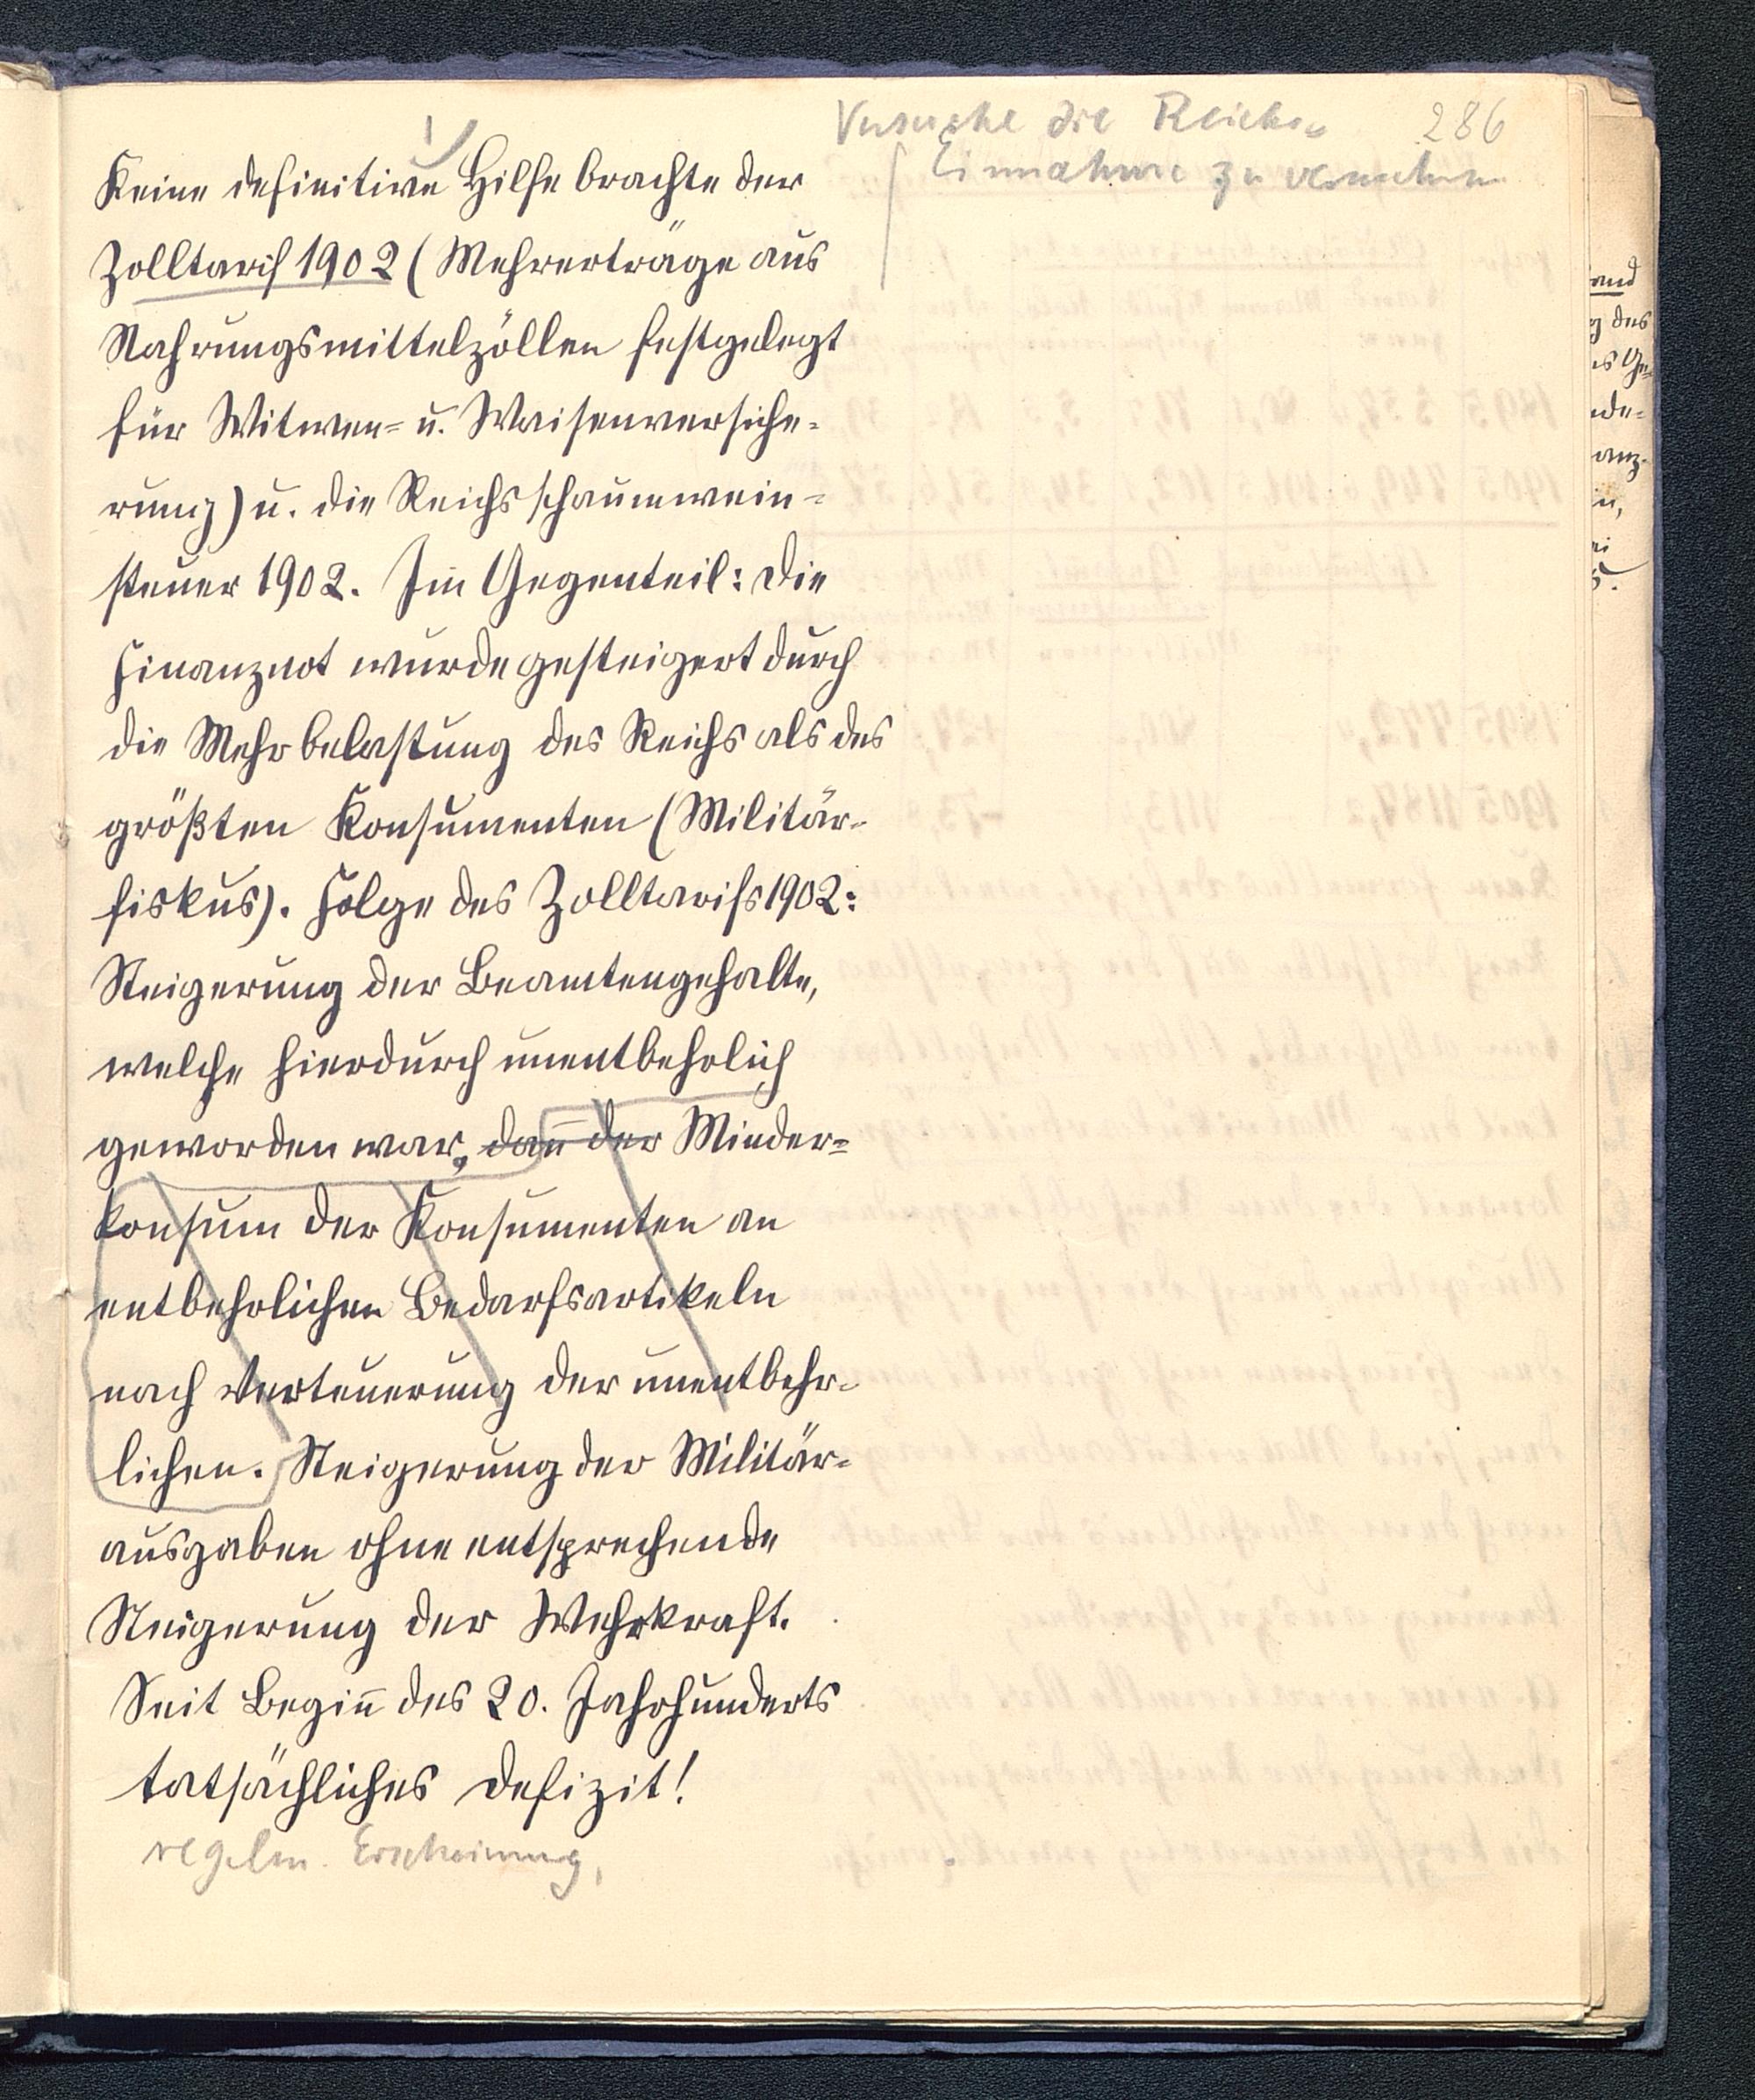 Versuche die Reichs- 286
Einnahme zu vermehren
Keine definitive Hilfe brachte der
Zolltarif 1902 (Mehrerträge aus
Nahrungsmittelzöllen festgelegt
für Witwen- u. Waisenversiche-
rung) u. die Reichsschaumwein-
steuer 1902. Im Gegenteil: Die
Finanznot wurde gesteigert durch
die Mehrbelastung des Reichs als des
größten Konsumenten (Militär-
fiskus). Folge des Zolltarifs 1902:
Steigerung der Beamtengehalte,
welche hierdurch unentbehrlich
geworden war, dan̄ der Minder-
konsum der Konsumenten an
entbehrlichen Bedarfsartikeln
nach Verteuerung der unentbehr-
lichen. Steigerung der Militär-
ausgaben ohne entsprechende
Steigerung der Wehrkraft.
Seit Begin̄ des 20. Jahrhunderts
tatsächliches Defizit!
regelm. Erscheinung,